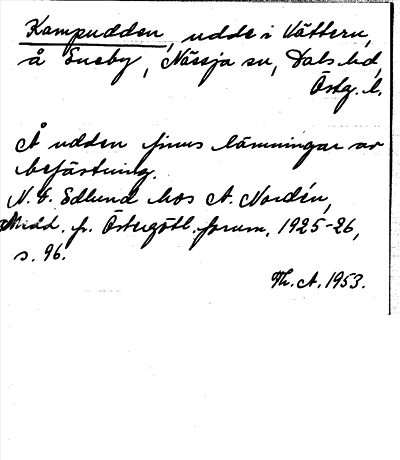 Kampudden, udde i Vättern,
å Eneby, Nässja sn, Dals hd,
Östg. l.
Å udden finns lämningar av
befästning.
N. G. Edlund hos A. Nordén,
Medd. fr. Östergötl. fornm. 1925-26,
s. 96.
Th. A. 1953.